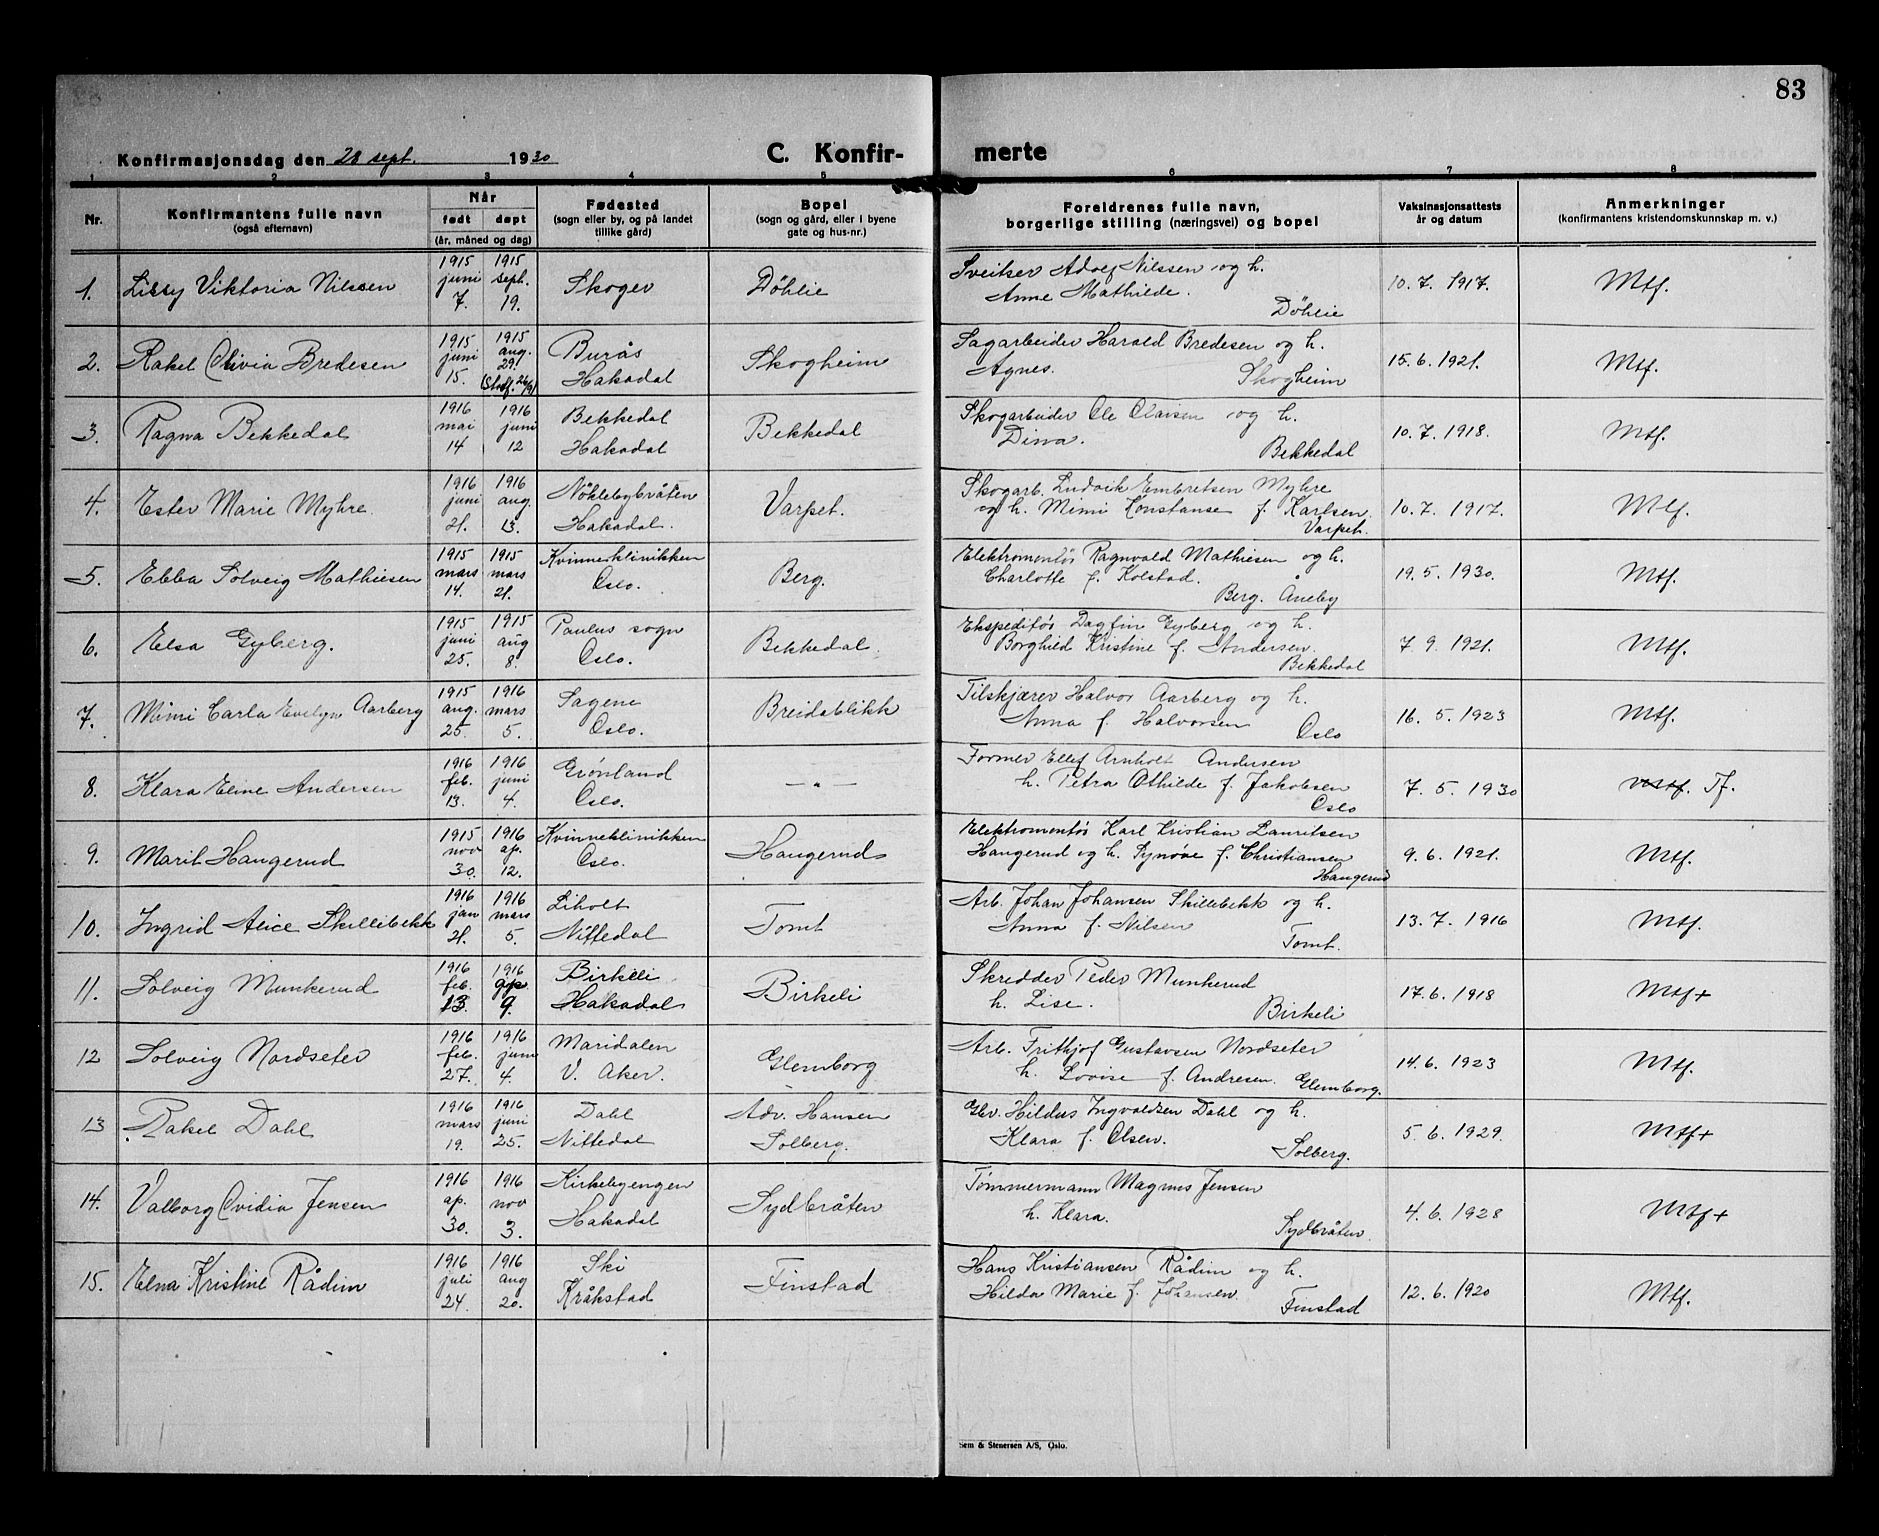 83
Konfirmasjonsdag den 28 sept. 1930 C. Konfir- merte
1 2 3 4 5 6 7 8
Nr. Konfirmantens fulle navn (også efternavn) Når født døpt (år, måned og dag) Fødested (sogn eller by, og på landet tillike gård) Bopel (sogn og gård, eller i byene gate og hus-nr.) Foreldrenes fulle navn, borgerlige stilling (næringsvei) og bopel Vaksinasjonsattests år og datum Anmerkninger (konfirmantens kristendomskunnskap m. v.)
1. Lissy Viktoria Nilssen 1915 juni 7. 1915 sept. 19. Skoger Döhlie Sveitser Adolf Nilssen og h. Anne Mathilde. Döhlie 10. 7. 1917. Mtf.
2. Rakel Olivia Bredesen 1915 juni 15. 1915 aug. 29. Burås Hakadal Skogheim Sagarbeider Harald Bredesen og h. Agnes. Skogheim 15. 6. 1921. Mtf.
3. Ragna Bekkedal 1916 mai 14 1916 juni 12 Bekkedal Hakadal Bekkedal Skogarbeider Ole Olaisen og h. Dina. Bekkedal 10. 7. 1918. Mtf.
4. Ester Marie Myhre. 1916 juni 21. 1916 aug. 13. Nöklebybråten Hakadal. Varpet. Skogarb. Ludvik Embretsen Myhre og h. Mimi Konstanse f. Karlsen. Varpet. 10. 7. 1917. Mtf.
5. Ebba Solveig Mathiesen 1915 mars 14. 1915 mars 21. Kvinneklinikken Oslo. Berg. Elektromontör Ragnvald Mathiesen og h. Charlotte f. Kolstad. Berg. Åneby 19. 5. 1930. Mtf.
6. Elsa Gyberg. 1915 juni 25. 1915 aug 8. Paulus sogn Oslo. Bekkedal. Ekspeditör Dagfin Gyberg og h. Borghild Kristine f. Andersen. Bekkedal 7. 9. 1921. Mtf.
7. Mimi Carla Evelyn Aarberg 1915 aug. 25. 1916 mars 5. Sagene Oslo. Breidablikk Tilskjærer Halvor Aarberg og h. Anna f. Halvorsen Oslo 16. 5. 1923 Mtf.
8. Klara Eline Andersen 1916 feb. 13. 1916 juni 4. Grönland Oslo. — „ — Former Ellef Arnholt Andersen h. Petra Othilde f. Jakobsen Oslo 7. 5. 1930 Tf.
9. Marit Haugerud 1915 nov 30. 1916 ap. 12. Kvinneklinikken Oslo. Haugerud Elektromontör Karl Kristian Lauritsen Haugerud og h. Synöve f. Christiansen Haugerud 9. 6. 1921. Mtf.
10. Ingrid Alice Skillebekk 1916 jan 21. 1916 mars 5. Liholt Nittedal Tomt Arb. Johan Johansen Skillebekk og h. Anna f. Nilsen Tomt. 13. 7. 1916 Mtf.
11. Solveig Munkerud 1916 feb. 13. 1916 ap. 9. Birkeli Hakadal Birkeli Skredder Peder Munkerud h. Lise. Birkeli 17. 6. 1918 Mtf+
12 Solveig Nordseter 1916 feb. 27. 1916 juni 4. Maridalen V. Aker. Glemborg Arb. Frithjof Gustavsen Nordseter h. Lovise f. Andresen. Glemborg. 14. 6. 1923 Mtf.
13 Rakel Dahl 1916 mars 19. 1916 juni 25. Dahl Nittedal Adv. Hansen Solberg. Gbr. Hildus Ingvaldsen Dahl og h. Klara f. Olsen. Solberg. 5. 6. 1929. Mtf+
14. Valborg Ovidia Jensen 1916 ap. 30. 1916 nov 3. Kirkebyengen Hakadal Sydbråten Tömmermann Magnus Jensen h. Klara. Sydbråten. 4. 6. 1928 Mtf+
15. Elna Kristine Rådim 1916 juli 24. 1916 aug 20. Ski Kråkstad Finstad Hans Kristiansen Rådim og h. Hilda Marie f. Johansen. Finstad 12. 6. 1920 Mtf.
Sem & Stenersen A/S, Oslo.